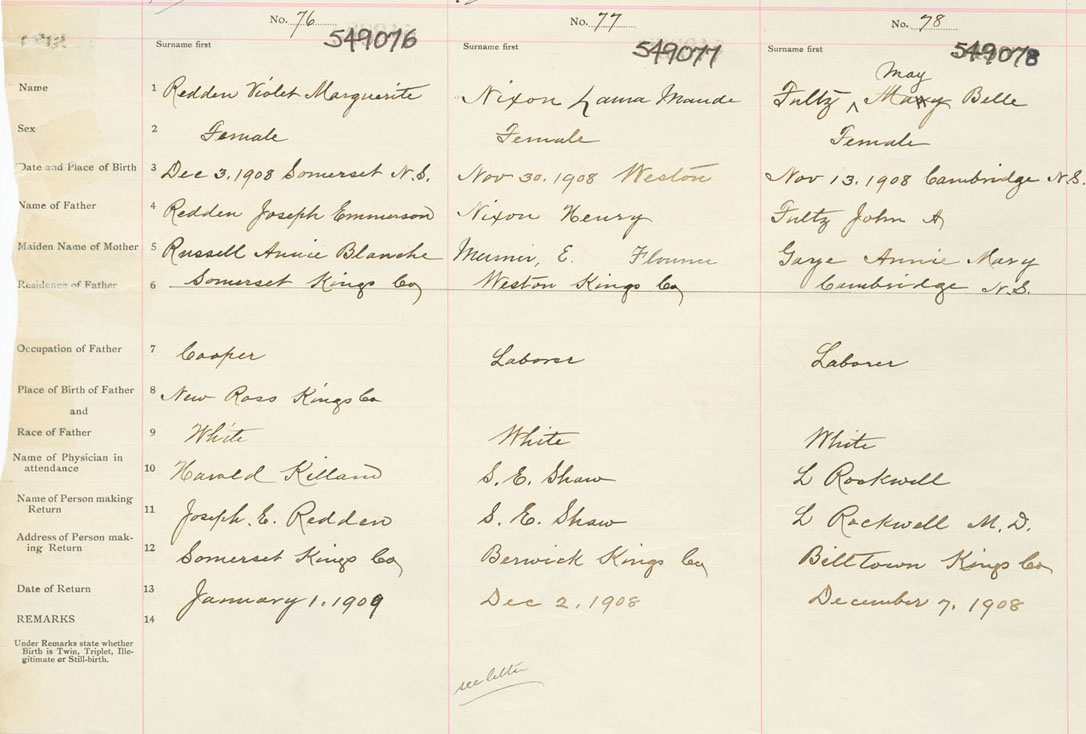 No. 76 No. 77 No. 78
549076 549077 549078
Surname first Surname first Surname first
May
Name 1 Redden Violet Marguerite Nixon Laura Maude Fultz ^ Mary Belle
Sex 2 Female Female Female
Date and Place of Birth 3 Dec 3, 1908 Somerset N.S. Nov 30, 1908 Weston Nov 13, 1908 Cambridge N.S.
Name of Father 4 Redden Joseph Emmerson Nixon Henry Fultz John A
Maiden Name of Mother 5 Russell Annie Blanche E. Florence Annie Mary
Residence of Father 6 Somerset Kings Co Weston Kings Co Cambridge N.S.
Occupation of Father 7 Cooper Laborer Laborer
Place of Birth of Father 8 New Ross Kings Co
and
Race of Father 9 White White White
Name of Physician in
attendance 10 Harold Killand S. E. Shaw L Rockwell
Name of Person making
Return 11 Joseph. E. Redden S. E. Shaw L Rockwell M.D.
Address of Person mak-
ing Return 12 Somerset Kings Co Berwick Kings Co Billtown Kings Co
Date of Return 13 January 1, 1909 Dec 2, 1908 December 7, 1908
REMARKS 14
Under Remarks state whether
Birth is Twin, Triplet, Ille-
gitimate or Still-birth.
see letter